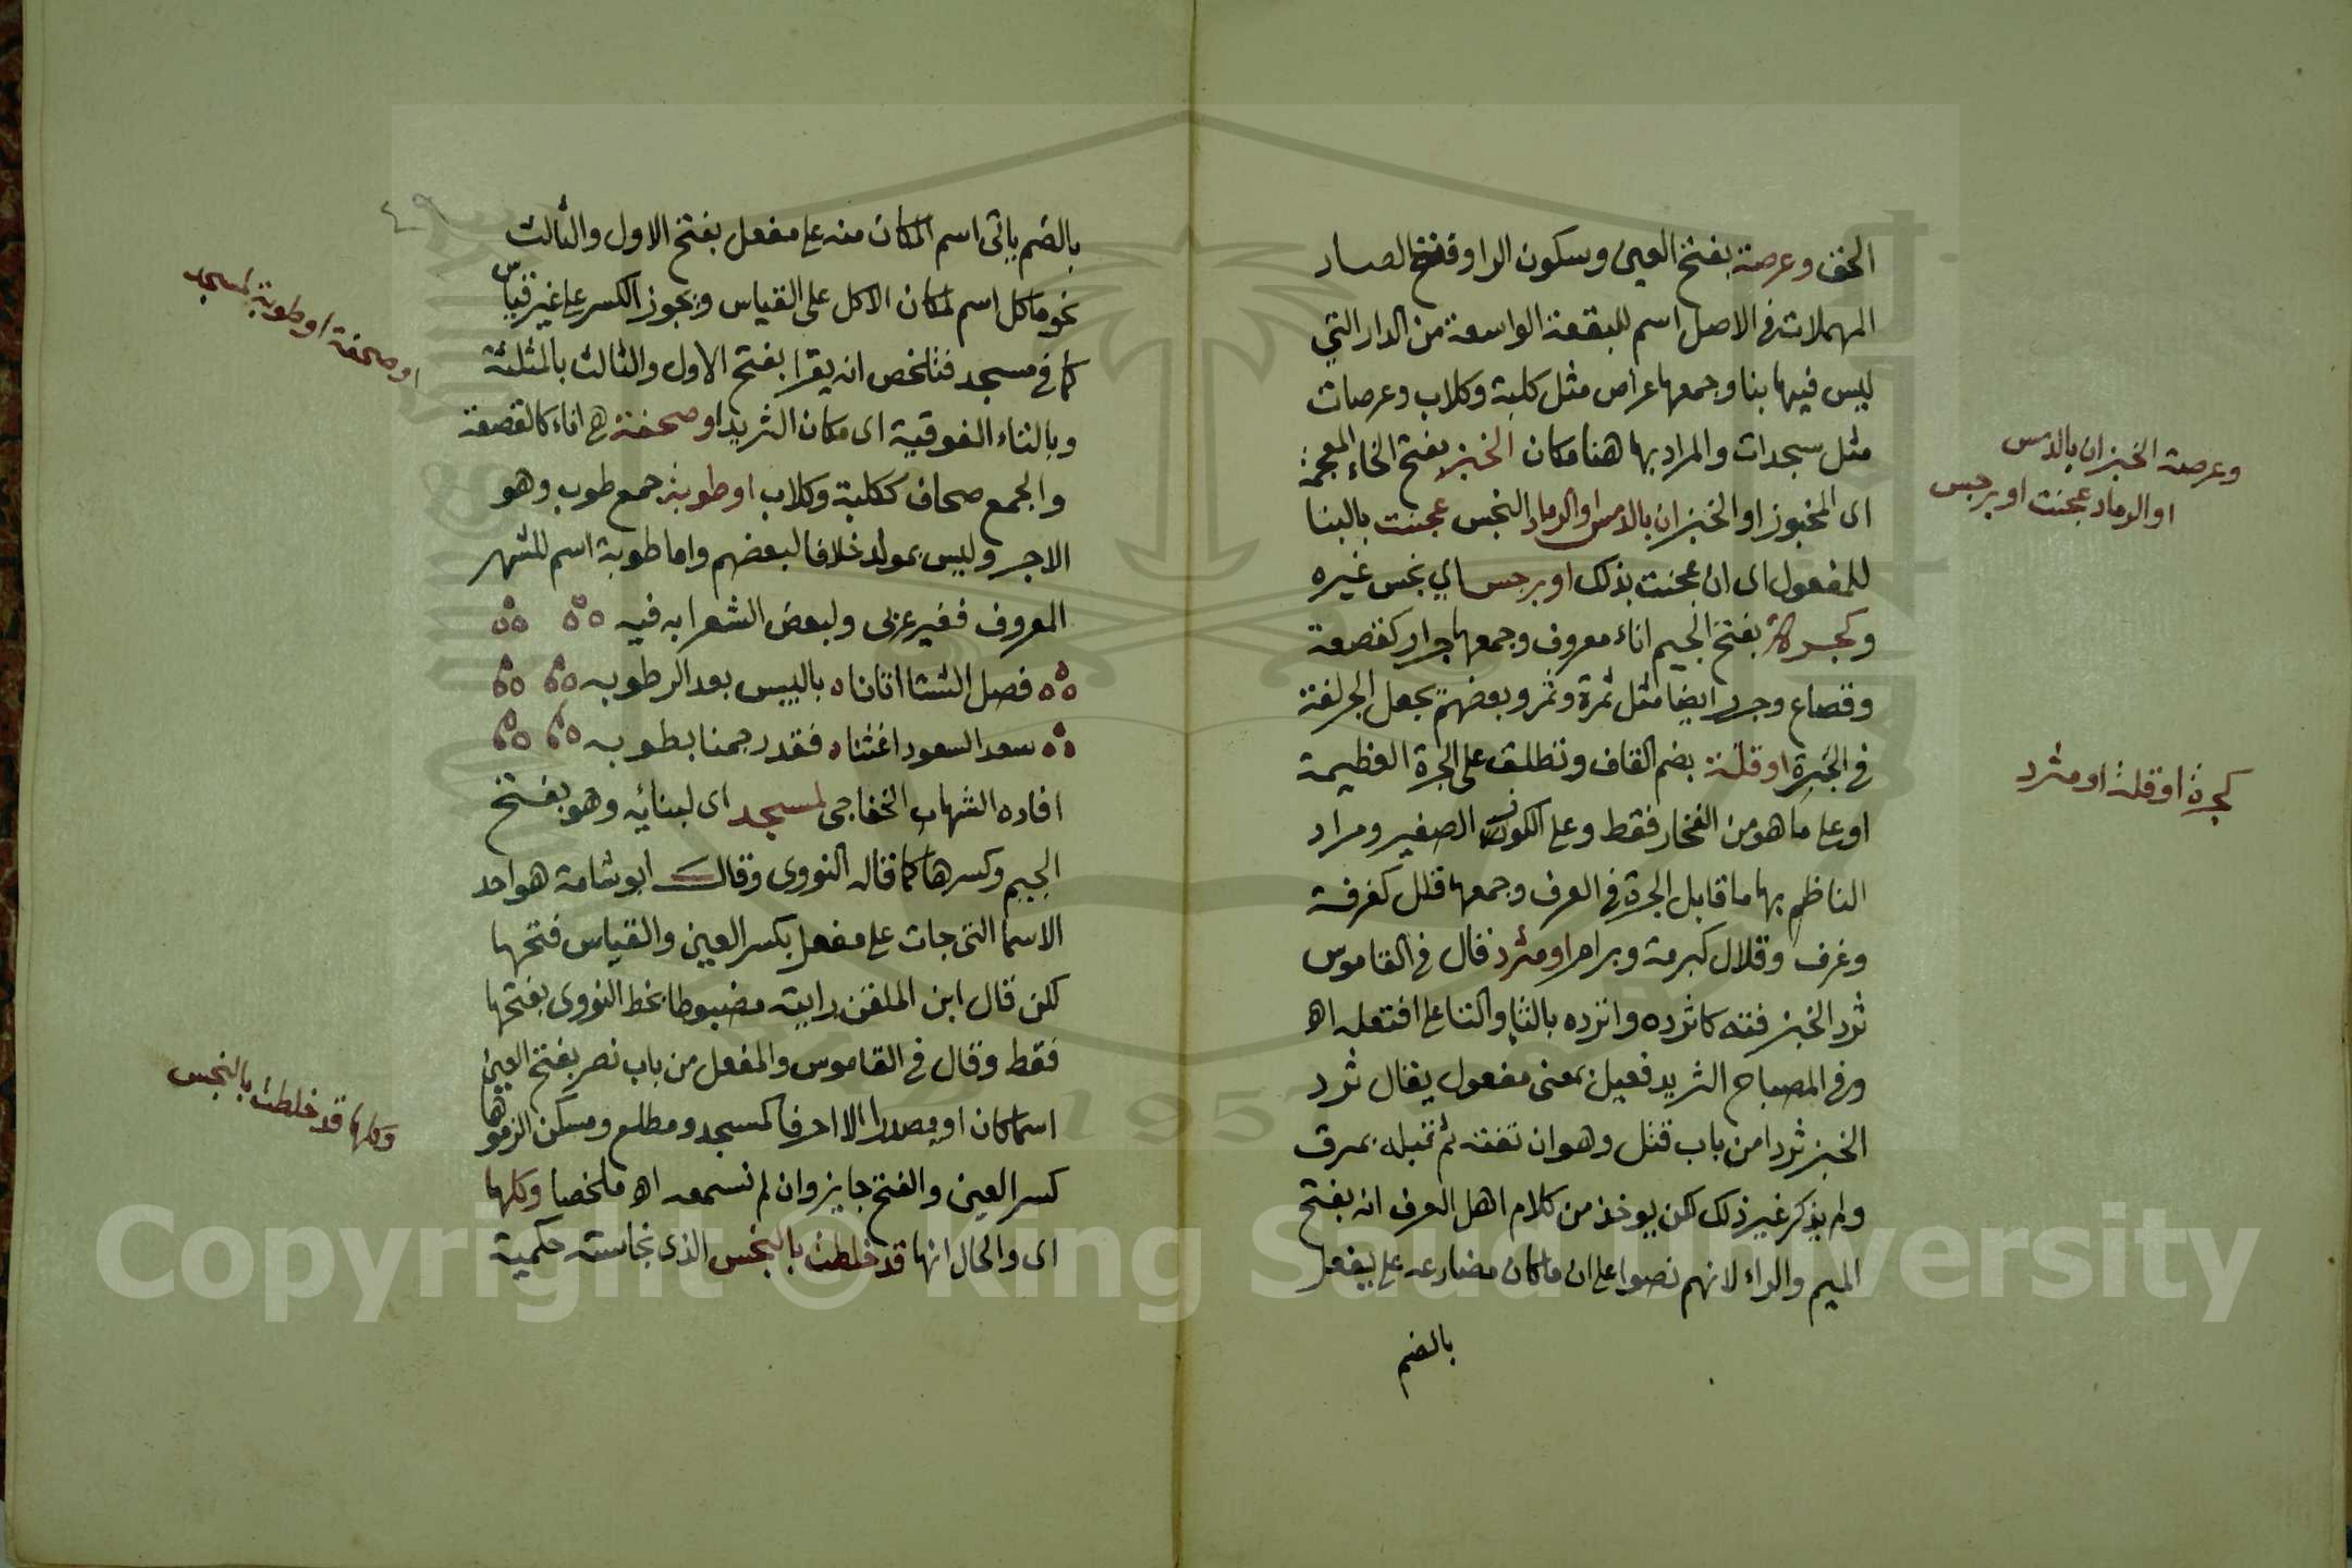 الخف وعرصة بفتح العين وسكون الرا وفتح الصاد
المهملات في الاصل اسم للبقعة الواسعة من الدار التي
ليس فيها بنا وجمعها عراص مثل كلبة وكلاب وعرصات
مثل سجدات والمراد بها هنا مكان الخبز بفتح الخاء المعجمة
اى المخبوز او الخبز ان بالدمس او الرماد النجس عجنت بالبنا
للمفعول اى ان عجنت بذلك او برجس اي نجس غيره
وكجرة بفتح الجيم اناء معروف وجمعها جرار كقصعة
وقصاع وجرر ايضا مثل ثمرة وثمر وبعضهم يجعل الجر لغة
في الجرة او قلة بضم القاف وتطلق على الجرة العظيمة
او على ما هو من الفخار فقط وعلى الكوز الصغير ومراد
الناظم بها ما قابل الجرة في العرف وجمعها قلل كغرفة
وغرف وقلال كبرمة وبرام او مثرد قال في القاموس
ثرد الخبز فته كاثرده واترده بالثا والتا على افتعله اه
وفي المصباح الثريد فعيل بمعنى مفعول يقال ثرد
الخبز ثردا من باب قتل وهو ان تفته ثم تبله بمرق
ولم يذكر غير ذلك لكن يوخذ من كلام اهل الصرف انه بفتح
الميم والراء لانهم نصوا على ان ما كان مضارعه على يفعل
بالضم
وعرصة الخبز ان بالدمس
او الرماد عجنت او برجس
كجرة او قلة او مثرد
بالضم ياتى اسم المكان منه على مفعل بفتح الاول والثالث
نحو ماكل اسم لمكان الاكل على القياس ويجوز الكسر على غير قياس
كما في مسجد فتلخص انه يقرا بفتح الاول والثالث بالمثلثة
وبالتاء الفوقية اى مكان الثريد او صحفة هي اناء كالقصعة
والجمع صحاف ككلبة وكلاب او طوبة جمع طوب وهو
الاجر وليس بمولد خلافا لبعضهم واما طوبة اسم للشهر
المعروف فغير عربى ولبعض الشعرا به فيه
فصل الشتا اتانا ه باليبس بعد الرطوبه
سعد السعود اغثنا ه فقد رجمنا بطوبه
افاده الشهاب الخفاجى لمسجد اى لبنائه وهو بفتح
الجيم وكسرها كما قاله النووى وقال ابو شامة هو احد
الاسما التى جات على مفعل بكسر العين والقياس فتحها
لكن قال ابن الملقن رايته مضبوطا بخط النووى بفتحها
فقط وقال في القاموس والمفعل من باب نصر بفتح العين
اسما كان او مصدرا الا احرفا كمسجد ومطلع ومسكن الزموها
كسر العين والفتح جايز وان لم نسمعه اه ملخصا وكلها
اى والحال انها قد خلطت بالنجس الذى نجاسته حكمية
او صحفة او طوبة لمسجد
وكلها قد خلطت بالنجس
٤٩
Copyright © King Saud University